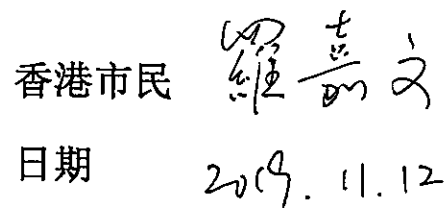 香港市民 羅嘉文
日期 2019.11.12